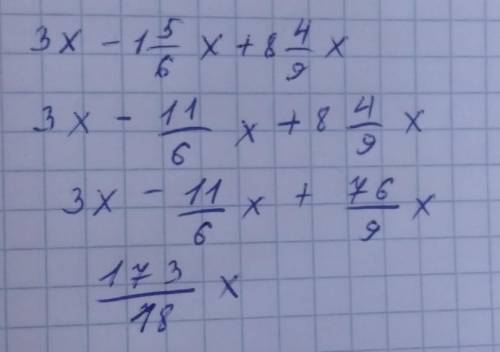 3x - 1 5/6 x + 8 4/9 x
3x - 11/6 x + 8 4/9 x
3x - 11/6 x + 76/9 x
173/18 x